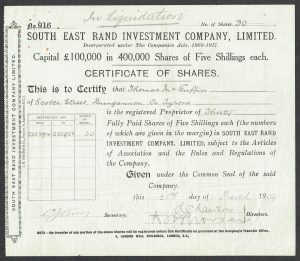 In liquidation
No. 916
No. of Shares 30
SOUTH EAST RAND INVESTMENT COMPANY, LIMITED.
Incorporated under The Companies Acts, 1908-1917.
Capital £100,000 in 400,000 Shares of Five Shillings each.
CERTIFICATE OF SHARES.
This is to Certify that Thomas Mc Guffin
of Scotch Street Dungannon Co Tyrone
is the registered Proprietor of Thirty
Fully Paid Shares of Five Shillings each (the numbers
of which are given in the margin) in SOUTH EAST RAND
INVESTMENT COMPANY, LIMITED, subject to the Articles
of Association and the Rules and Regulations of the
Company.
30
Given under the Common Seal of the said
Company,
this day of March 1919
Secretary.
Directors.
NOTE.—No transfer of any portion of the above Shares will be registered unless this Certificate be produced at the Company's Transfer Office,
LONDON WALL BUILDINGS, LONDON, E.C.
SOUTH EAST RAND INVESTMENT COMPANY, LIMITED.